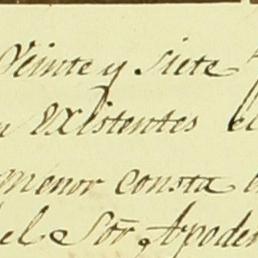 Veinte y siete
Existentes el
menor consta
el Sor. Apoder